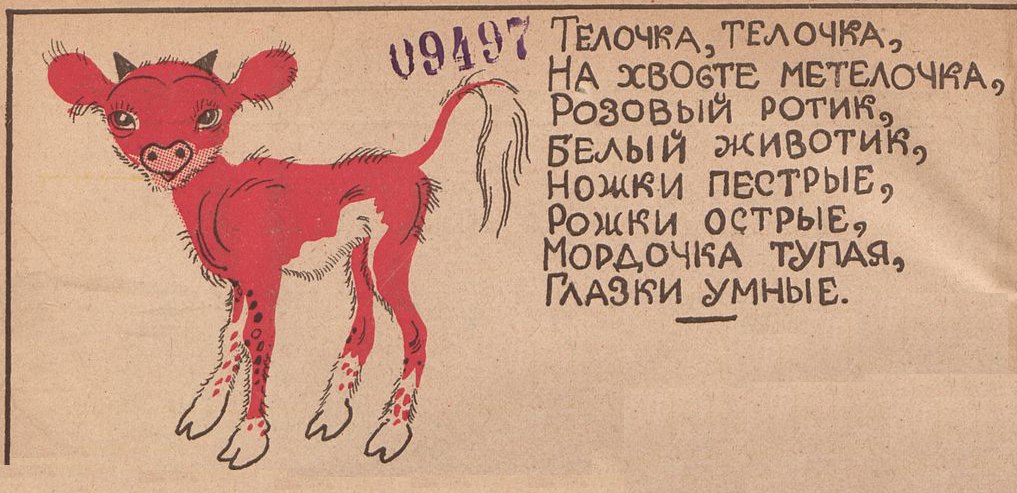 09497
Телочка, телочка,
На хвосте метелочка,
Розовый ротик,
Белый животик,
Ножки пестрые,
Рожки острые,
Мордочка тупая,
Глазки умные.